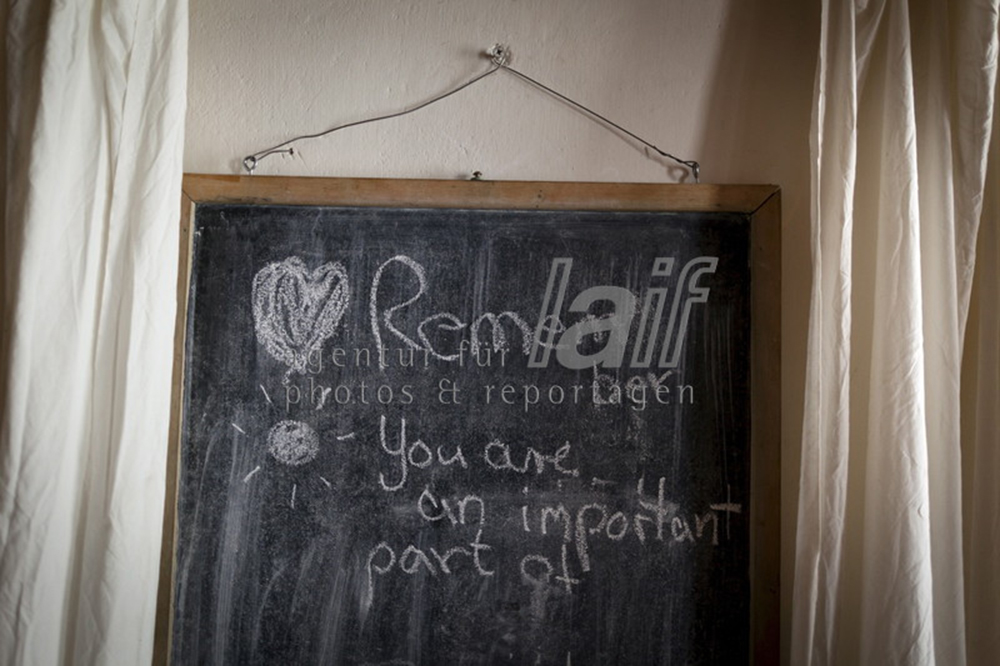 Remem
ber
You are
an important
part of
laif
agentur für
photos & reportagen